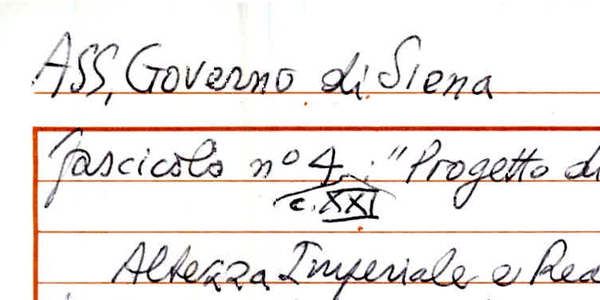 ASS, Governo di Siena
fascicolo n° 4 : "Progetto di
c. XXI
Altezza Imperiale e Rea